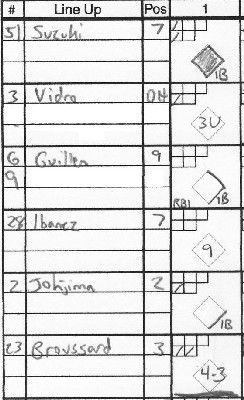 # Line Up Pos 1
51 Suzuki 7
1B
3 Vidro DH 3U
6 Guillen 9
9
RBI 1B
28 Ibanez 7 9
2 Johjima 2
1B
23 Broussard 3 4-3